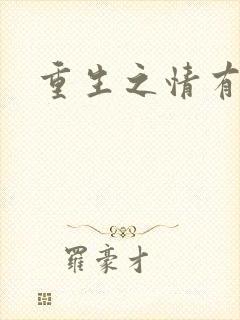 重生之情有
羅豪才